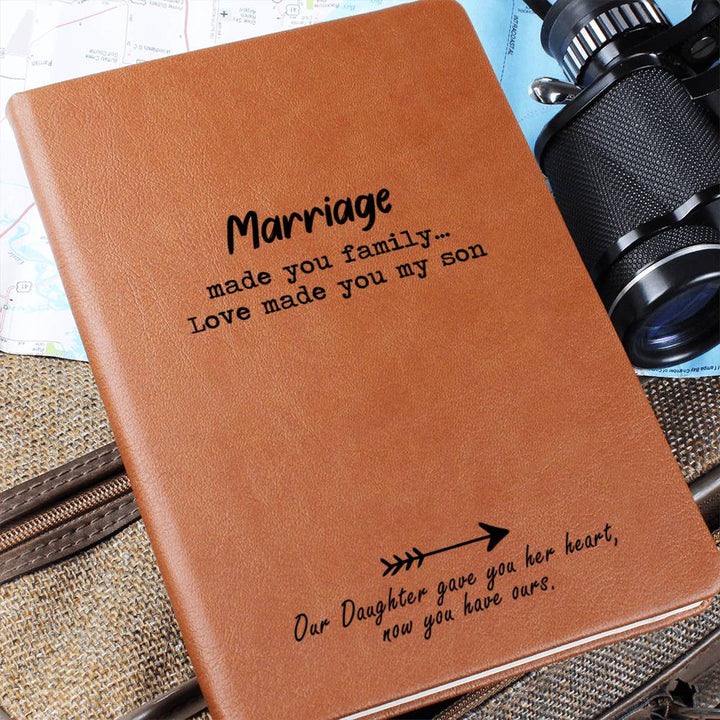 Marriage
made you family...
Love made you my son
Our Daughter gave you her heart,
now you have ours.